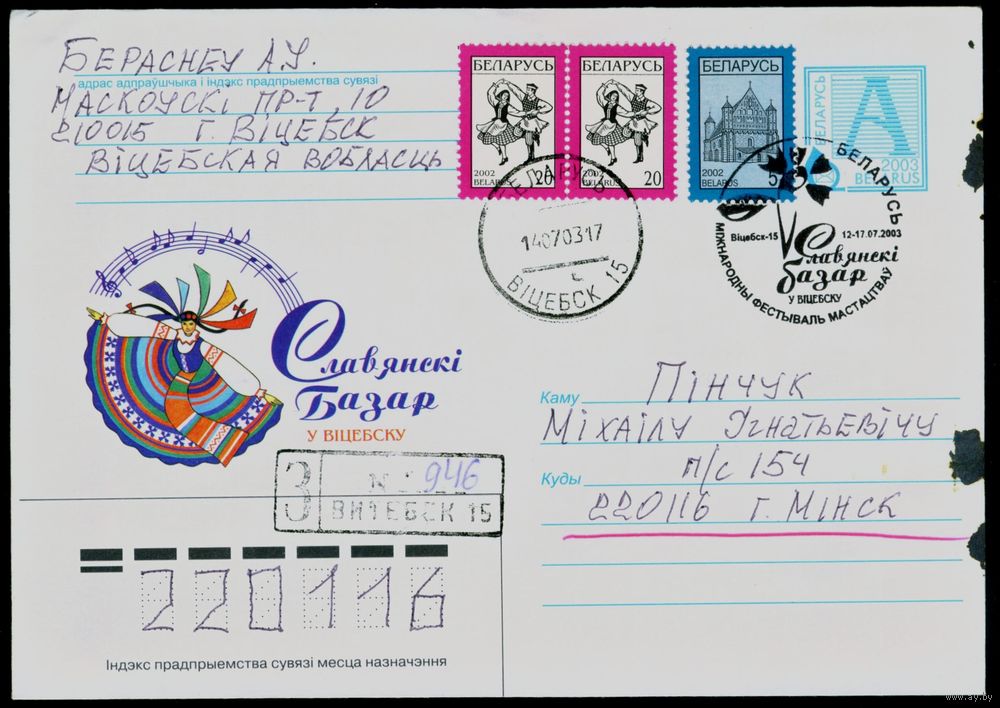 БЕРАСНЕУ А.У.
адрас адпраўшчыка і індэкс прадпрыемства сувязі
МАСКОЎСКІ ПР-Т, 10
210015 Г. ВІЦЕБСК
ВІЦЕБСКАЯ ВОБЛАСЦЬ
БЕЛАРУСЬ
2002
BELARUS
20
БЕЛАРУСЬ
2002
BELARUS
20
БЕЛАРУСЬ
2002
BELARUS
БЕЛАРУСЬ
A
2003
BELARUS
БЕЛАРУСЬ
14070317
ВІЦЕБСК 15
БЕЛАРУСЬ
Віцебск-15
12-17.07.2003
Славянскі
базар
У ВІЦЕБСКУ
МІЖНАРОДНЫ ФЕСТЫВАЛЬ МАСТАЦТВАЎ
Славянскі
Базар
У ВІЦЕБСКУ
З
N 946
ВИТЕБСК 15
Каму ПІНЧУК
МІХАІЛУ ІГНАТЬЕВІЧУ
п/с 154
Куды
220116 Г. МІНСК
220116
Індэкс прадпрыемства сувязі месца назначэння
www.ay.by